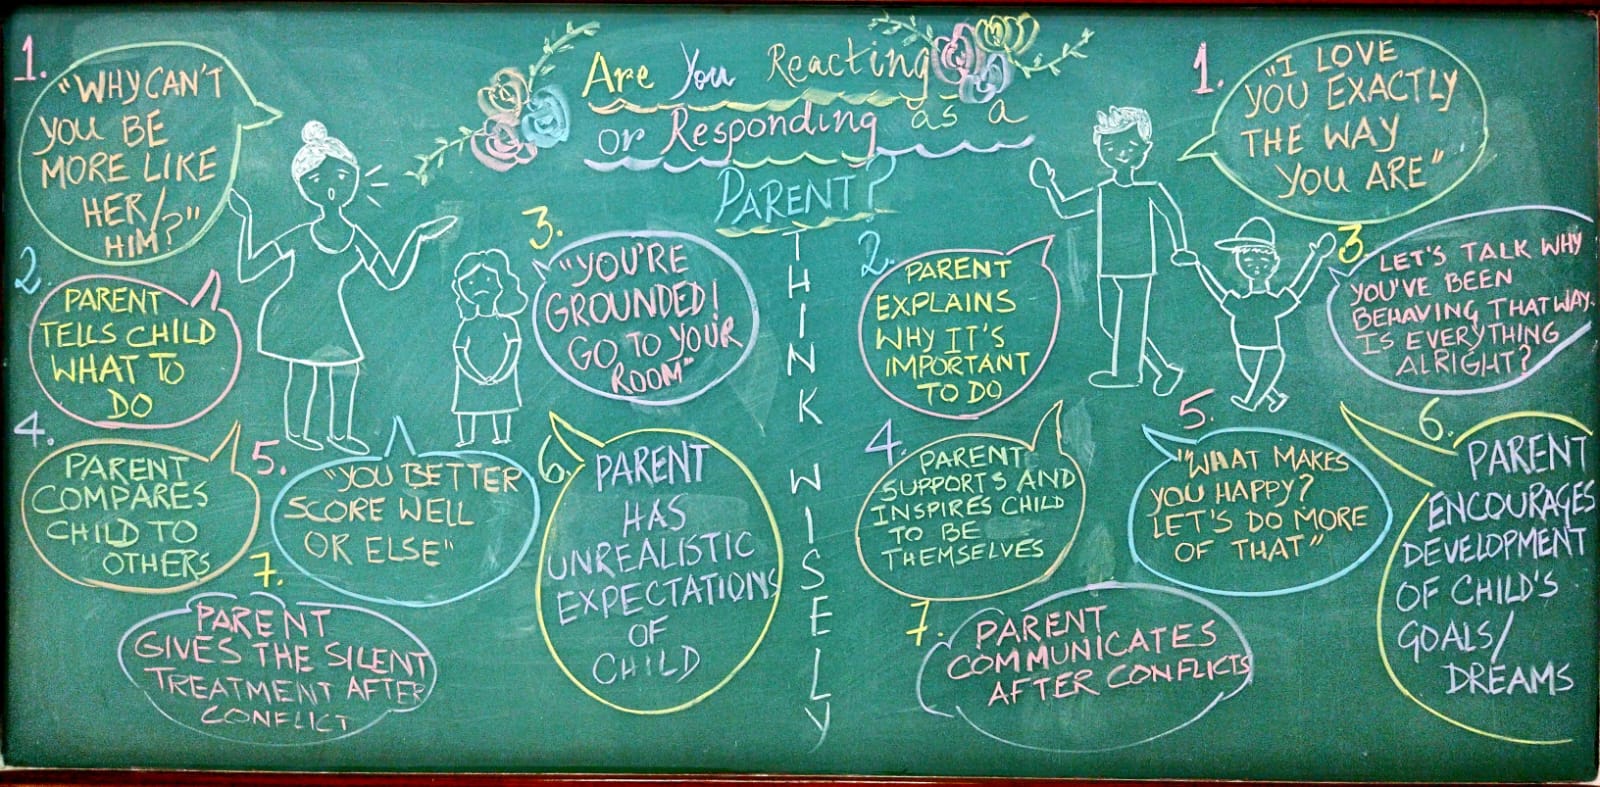 Are You Reacting
or Responding as a
PARENT?
1.
"WHY CAN'T
YOU BE
MORE LIKE
HER/
HIM?"
2.
PARENT
TELLS CHILD
WHAT TO
DO
3.
"YOU'RE
GROUNDED!
GO TO YOUR
ROOM"
4.
PARENT
COMPARES
CHILD TO
OTHERS
5.
"YOU BETTER
SCORE WELL
OR ELSE"
6.
PARENT
HAS
UNREALISTIC
EXPECTATIONS
OF
CHILD
7.
PARENT
GIVES THE SILENT
TREATMENT AFTER
CONFLICT
THINK WISELY
1.
"I LOVE
YOU EXACTLY
THE WAY
YOU ARE"
2.
PARENT
EXPLAINS
WHY IT'S
IMPORTANT
TO DO
3.
LET'S TALK WHY
YOU'VE BEEN
BEHAVING THAT WAY.
IS EVERYTHING
ALRIGHT?
4.
PARENT
SUPPORTS AND
INSPIRES CHILD
TO BE
THEMSELVES
5.
"WHAT MAKES
YOU HAPPY?
LET'S DO MORE
OF THAT"
6.
PARENT
ENCOURAGES
DEVELOPMENT
OF CHILD'S
GOALS/
DREAMS
7.
PARENT
COMMUNICATES
AFTER CONFLICTS